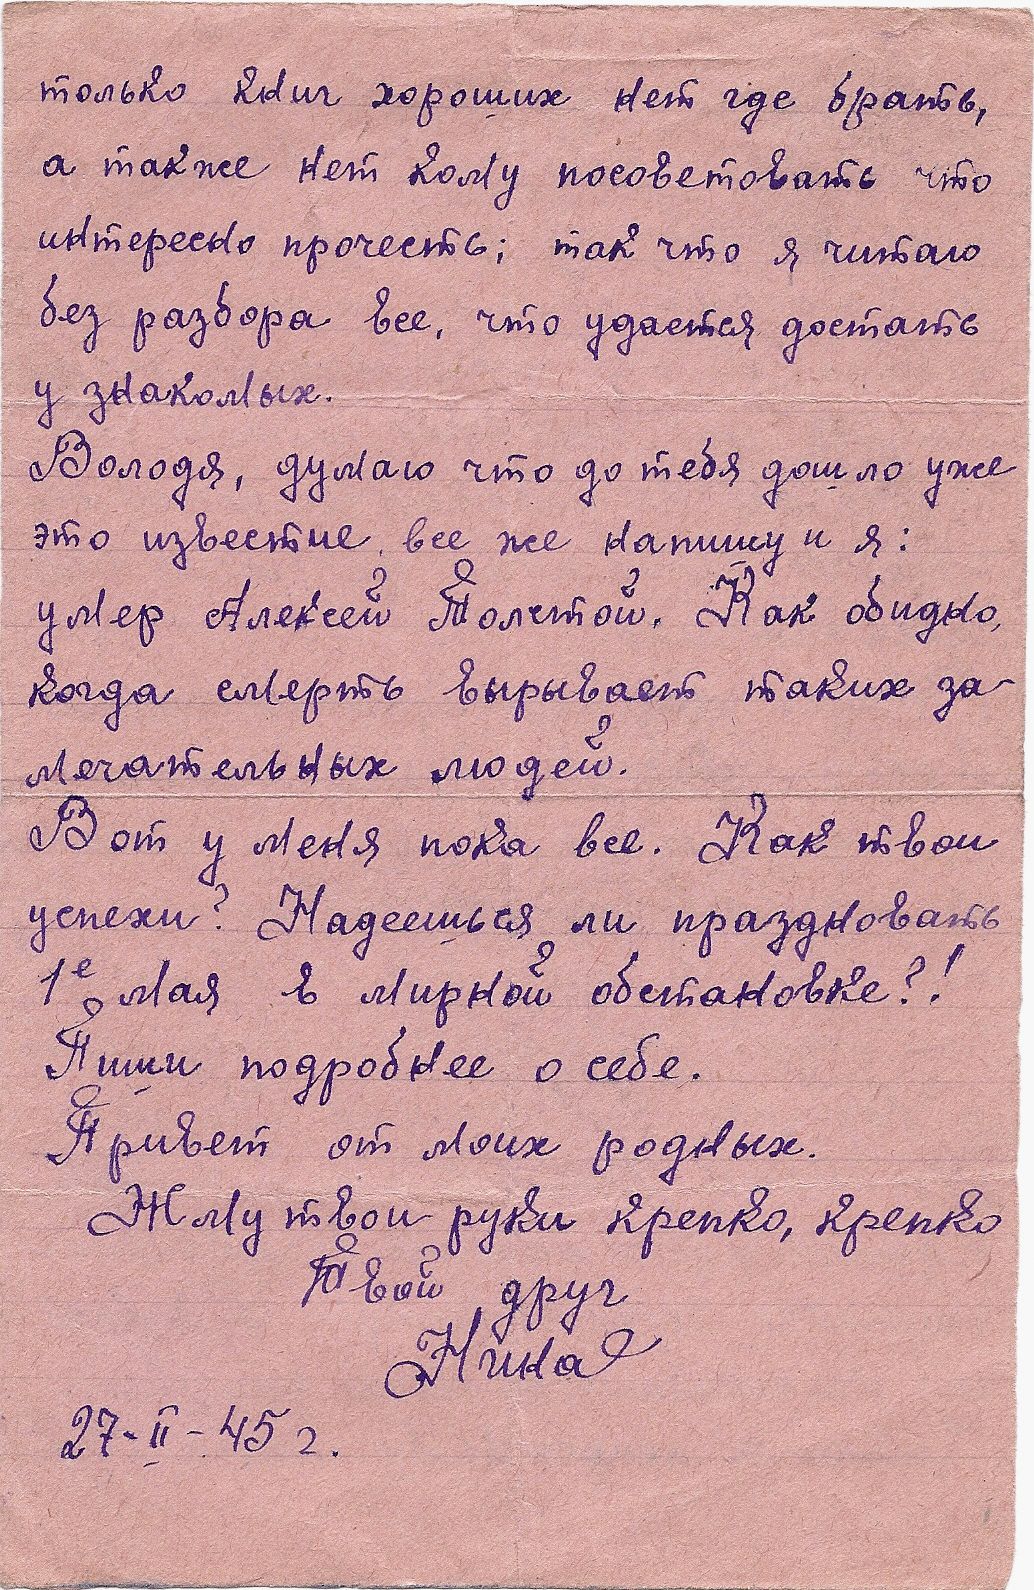 только книг хороших нет где брать,
а также нет кому посоветовать что
интересно прочесть; так что я читаю
без разбора все, что удается достать
у знакомых.
Володя, думаю что до тебя дошло уже
это известие, все же напишу и я:
умер Алексей Толстой. Как обидно,
когда смерть вырывает таких за-
мечательных людей.
Вот у меня пока все. Как твои
успехи? Надеешься ли праздновать
1е Мая в мирной обстановке?!
Пиши подробнее о себе.
Привет от моих родных.
Жму твои руки крепко, крепко
Твой друг
Нина
27-II-45 г.